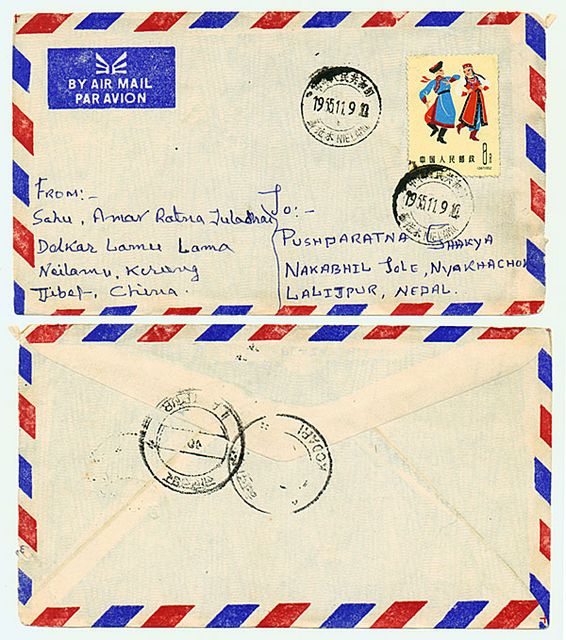 BY AIR MAIL
PAR AVION
中华人民共和国
1965.11.9
NIELAMU
中国人民邮政 8分
中华人民共和国
1965.11.9
NIELAMU
From:-
Sahu, Amar Ratna Tuladhar
Dolkar Lamu Lama
Neilamu, Kerung
Tibet, China.
To:-
PUSHPARATNA SHAKYA
NAKABHIL TOLE, NYAKHACHOK
LALITPUR, NEPAL.
KODARI